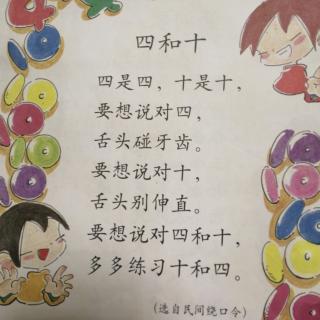 四和十
四是四，十是十，
要想说对四，
舌头碰牙齿。
要想说对十，
舌头别伸直。
要想说对四和十，
多多练习十和四。
（选自民间绕口令）